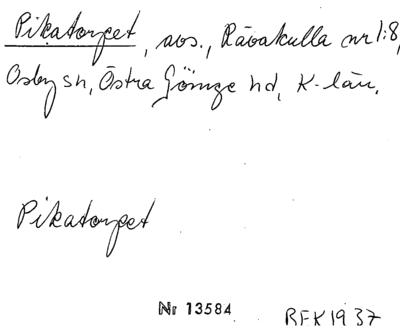 Pikatorpet, avs., Rävakulla nr 1:8,
Osby sn, Östra Göinge hd, K-län.
Pikatorpet
Nr 13584
BFK 1937